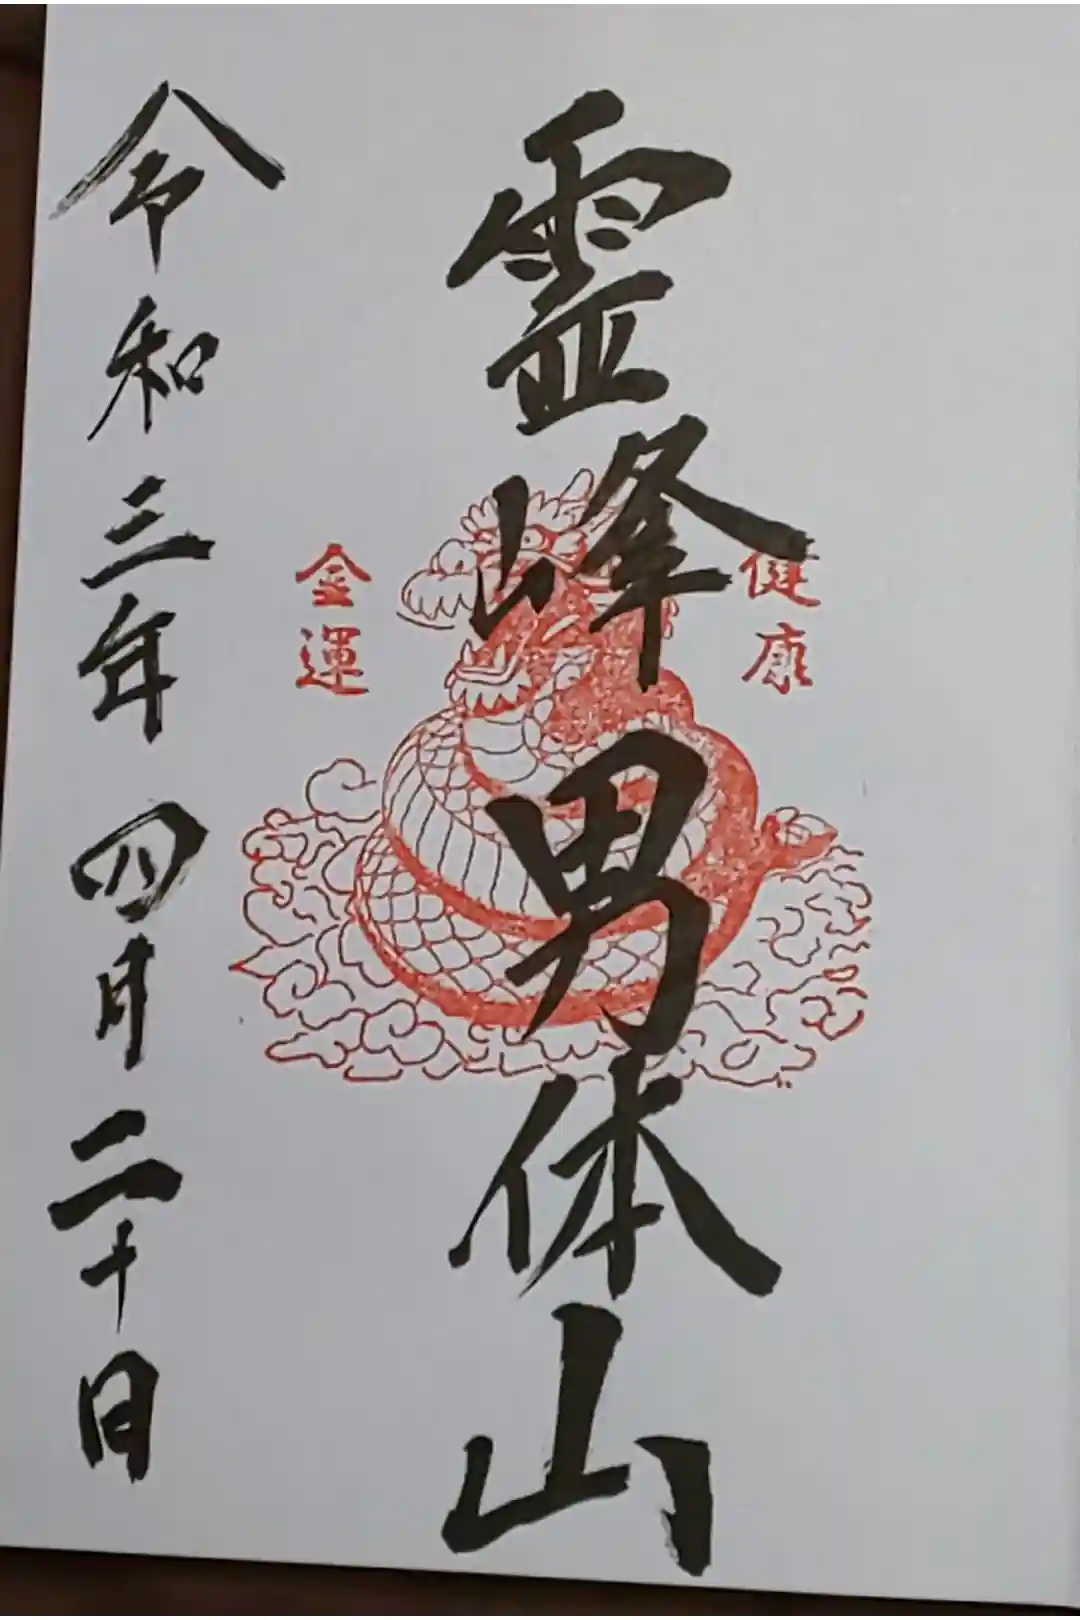 健康
霊峰男体山
金運
令和三年四月二十日